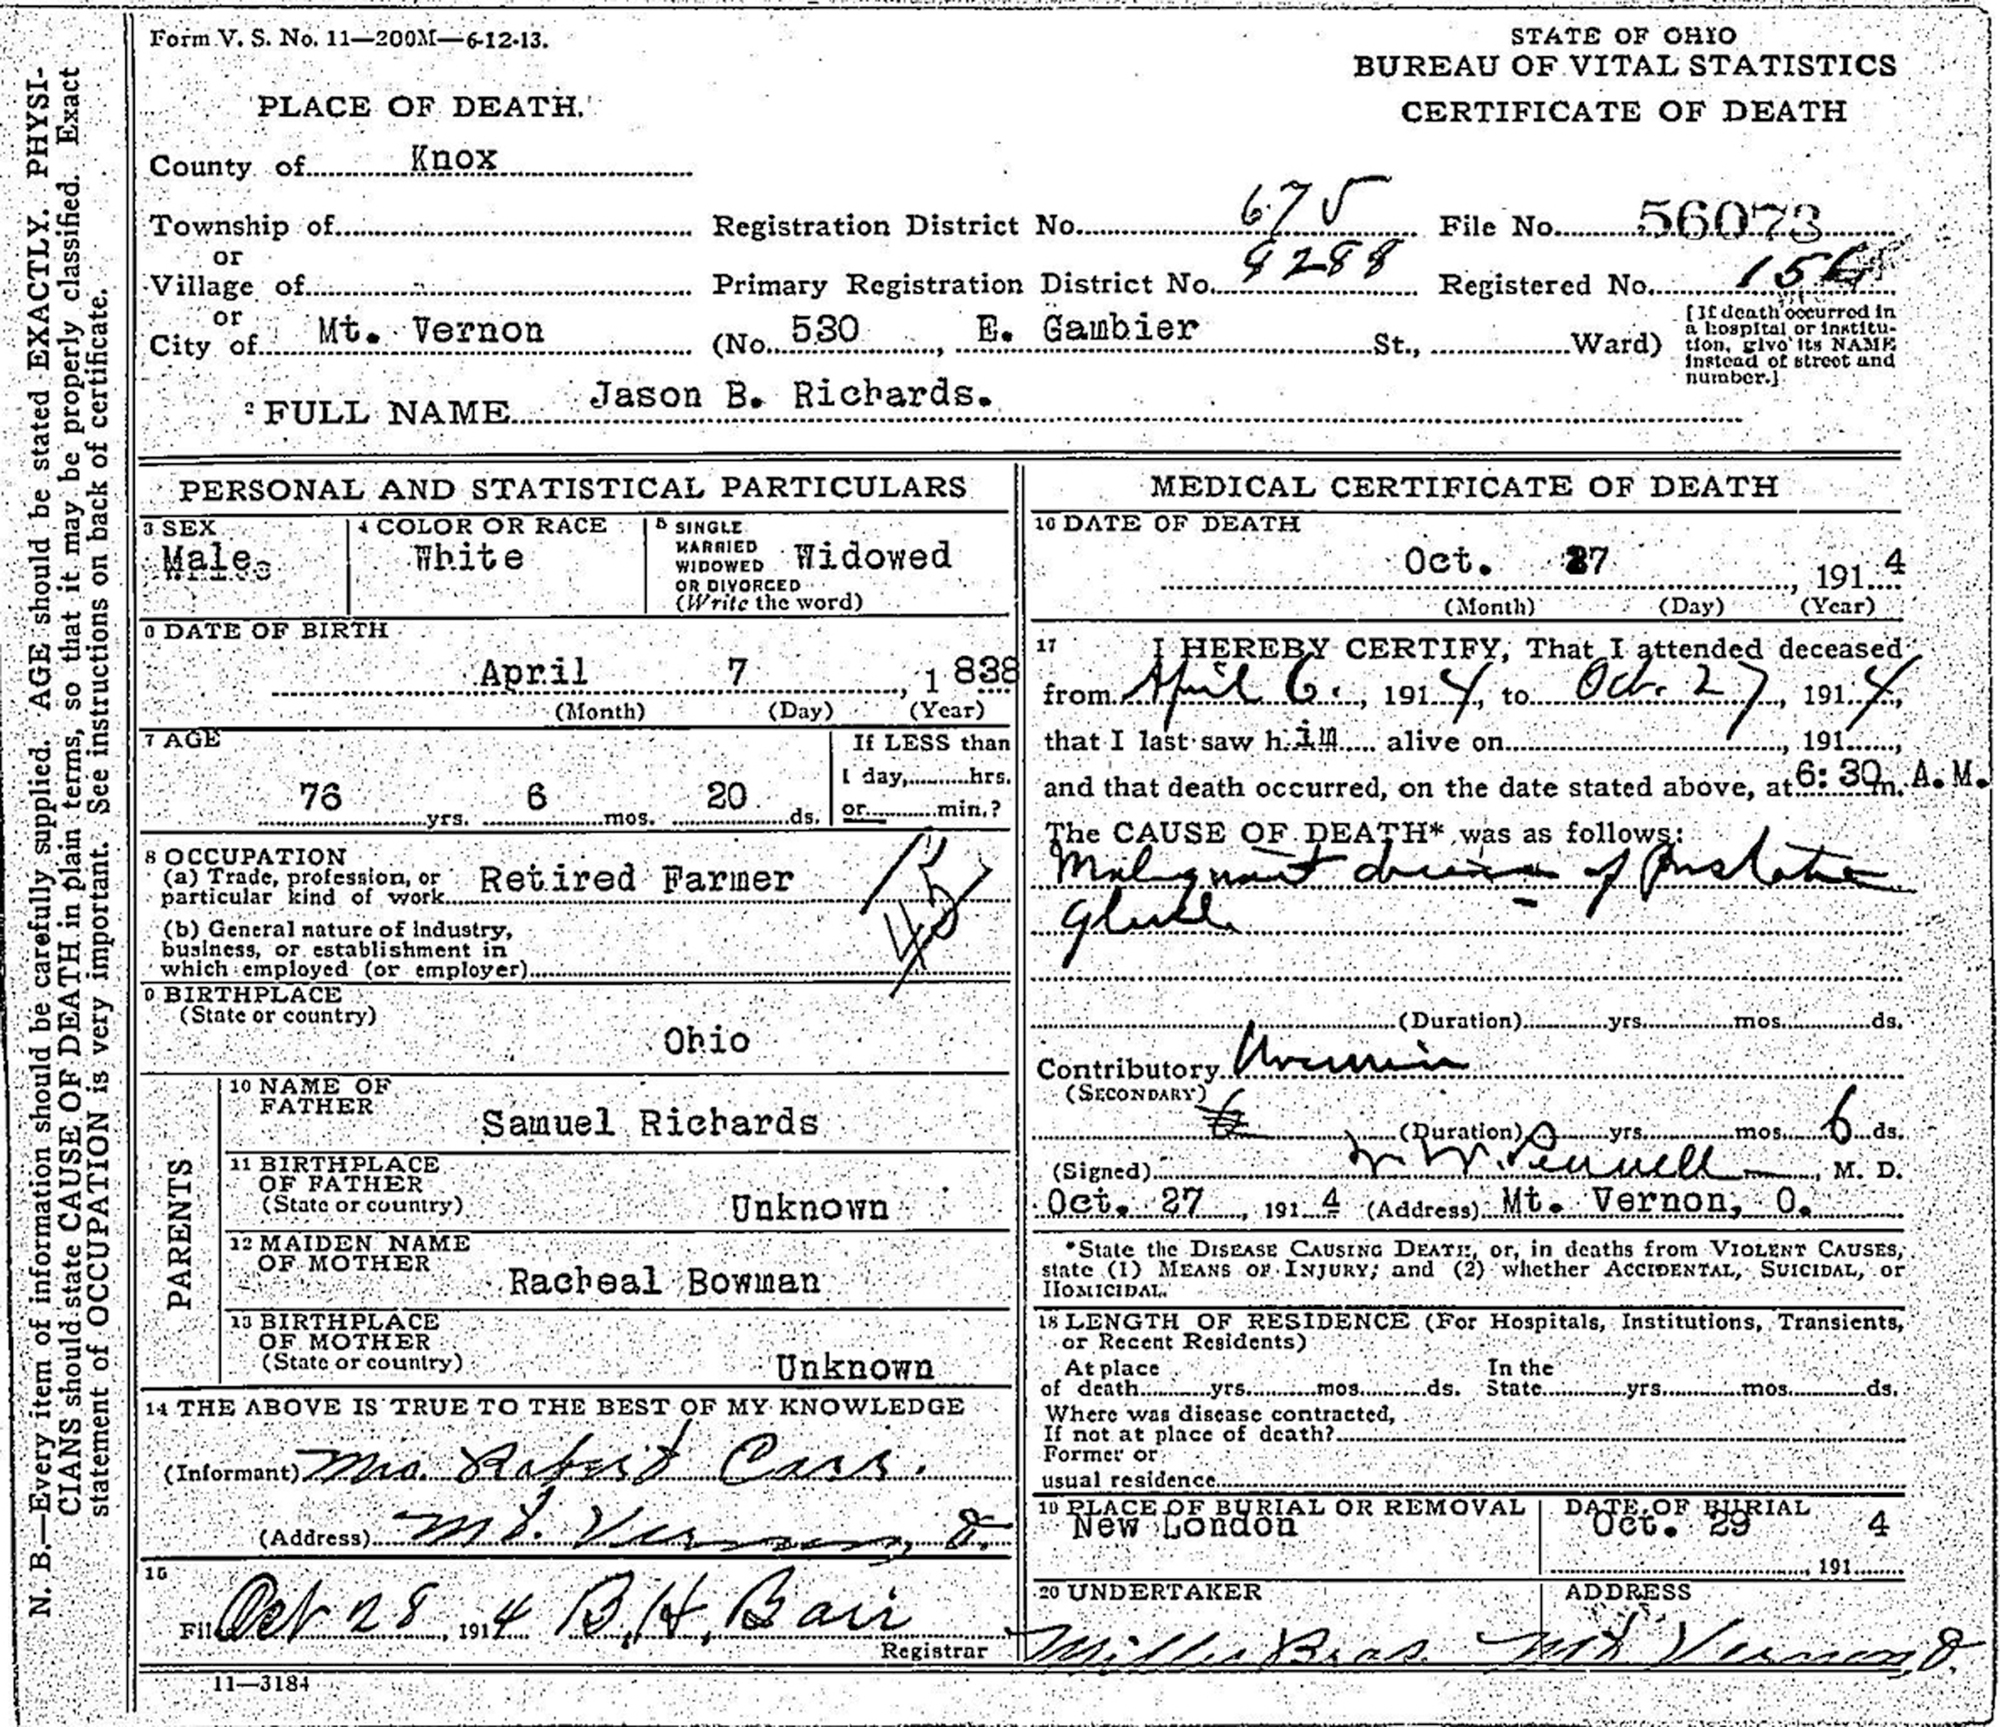 Form V. S. No. 11—200M—6-12-13.
STATE OF OHIO
BUREAU OF VITAL STATISTICS
CERTIFICATE OF DEATH
PLACE OF DEATH.
County of Knox
Township of Registration District No. 675 File No. 56073
or
Village of Primary Registration District No. 8288 Registered No.
or
City of Mt. Vernon (No. 530, E. Gambier St., Ward)
[If death occurred in
a hospital or institu-
tion, give its NAME
instead of street and
number.]
2 FULL NAME Jason B. Richards.
PERSONAL AND STATISTICAL PARTICULARS
3 SEX
Male
4 COLOR OR RACE
White
5 SINGLE
MARRIED
WIDOWED
OR DIVORCED
(Write the word)
Widowed
6 DATE OF BIRTH
April 7, 1 838
(Month) (Day) (Year)
7 AGE
76 yrs. 6 mos. 20 ds.
If LESS than
1 day, hrs.
or min.?
8 OCCUPATION
(a) Trade, profession, or
particular kind of work Retired Farmer
(b) General nature of industry,
business, or establishment in
which employed (or employer)
9 BIRTHPLACE
(State or country)
Ohio
PARENTS
10 NAME OF
FATHER
Samuel Richards
11 BIRTHPLACE
OF FATHER
(State or country)
Unknown
12 MAIDEN NAME
OF MOTHER
Racheal Bowman
13 BIRTHPLACE
OF MOTHER
(State or country)
Unknown
14 THE ABOVE IS TRUE TO THE BEST OF MY KNOWLEDGE
(Informant) Mrs. Robert Carr.
(Address) Mt. Vernon, O.
15
Filed Oct 28, 1914 B. H. Bair
Registrar
11—3184
MEDICAL CERTIFICATE OF DEATH
16 DATE OF DEATH
Oct. 27, 191 4
(Month) (Day) (Year)
17 I HEREBY CERTIFY, That I attended deceased
from April 6., 1914, to Oct. 27, 1914,
that I last saw h im alive on , 191 ,
and that death occurred, on the date stated above, at 6:30 m. A.M.
The CAUSE OF DEATH* was as follows:
Malignant disease of Prostate
Gland
(Duration) yrs. mos. ds.
Contributory Uremia
(SECONDARY)
(Duration) yrs. mos. 6 ds.
(Signed) W. Pennell, M. D.
Oct. 27, 191 4 (Address) Mt. Vernon, O.
*State the DISEASE CAUSING DEATH, or, in deaths from VIOLENT CAUSES,
state (1) MEANS OF INJURY; and (2) whether ACCIDENTAL, SUICIDAL, or
HOMICIDAL.
18 LENGTH OF RESIDENCE (For Hospitals, Institutions, Transients,
or Recent Residents)
At place In the
of death yrs. mos. ds. State yrs. mos. ds.
Where was disease contracted,
If not at place of death?
Former or
usual residence
19 PLACE OF BURIAL OR REMOVAL
New London
DATE OF BURIAL
Oct. 29 4
, 191
20 UNDERTAKER
Miller Bros.
ADDRESS
Mt Vernon, O.
N. B.—Every item of information should be carefully supplied. AGE should be stated EXACTLY. PHYSI-
CIANS should state CAUSE OF DEATH in plain terms, so that it may be properly classified. Exact
statement of OCCUPATION is very important. See instructions on back of certificate.